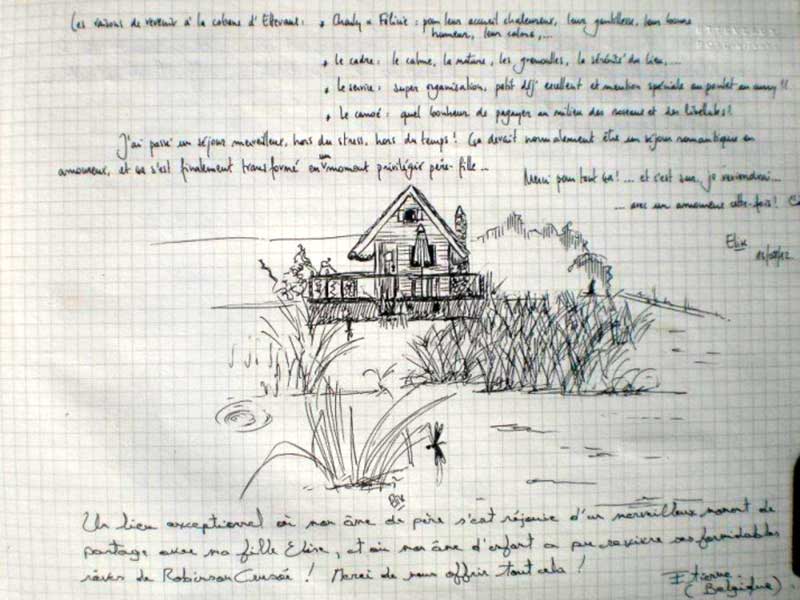 Les raisons de revenir à la cabane d'Ettevaux : * Charly & Félicie : pour leur accueil chaleureux, leur gentillesse, leur bonne
humeur, leur calme,...
* le cadre : le calme, la nature, les grenouilles, la sérénité du lieu,...
* le service : super organisation, petit déj' excellent et mention spéciale au poulet au curry !!
* Le canoë : quel bonheur de pagayer au milieu des roseaux et des libellules !
J'ai passé un séjour merveilleux, hors du stress, hors du temps ! Ça devait normalement être un séjour romantique en
amoureux, et ça s'est finalement transformé en un moment privilégié père-fille...
Merci pour tout ça ! ... et c'est sur, je reviendrai...
... avec un amoureux cette fois !
Elise
Un lieu exceptionnel où mon âme de père s'est réjouie d'un merveilleux moment de
partage avec ma fille Elise, et où mon âme d'enfant a pu raviver ses formidables
rêves de Robinson Crusoé ! Merci de nous offrir tout cela !
Etienne
(Belgique)